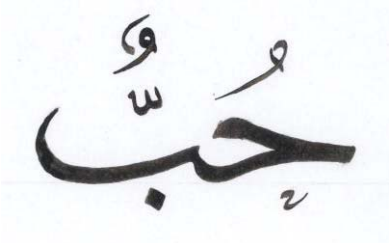 حُبٌّ